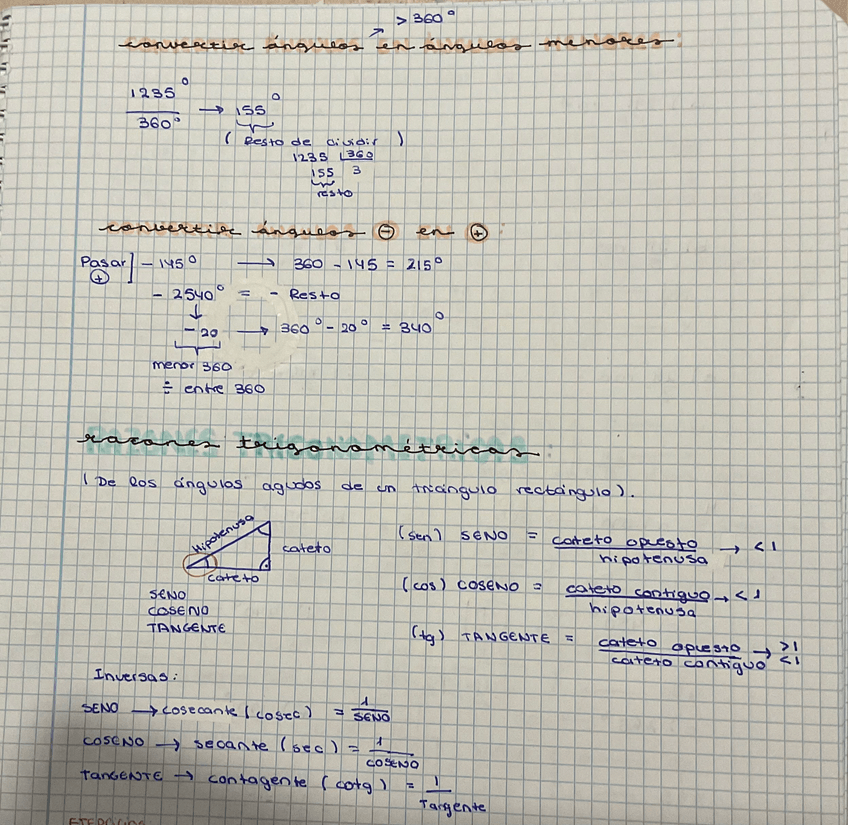 > 360°
convertir ángulos en ángulos menores:
1235°
360° → 155°
( Resto de dividir )
1235 360
155 3
resto
convertir ángulos ⊖ en ⊕:
Pasar ⊕ ] - 145° → 360 - 145 = 215°
- 2540° = - Resto
↓
- 20 → 360° - 20° = 340°
menor 360
÷ entre 360
razones trigonométricas:
( De los ángulos agudos de un triángulo rectángulo ).
Hipotenusa
cateto
cateto
SENO
COSENO
TANGENTE
(sen) SENO = cateto opuesto / hipotenusa → < 1
(cos) COSENO = cateto contiguo / hipotenusa → < 1
(tg) TANGENTE = cateto opuesto / cateto contiguo → >1 <1
Inversas:
SENO → cosecante ( cosec ) = 1 / SENO
COSENO → secante ( sec ) = 1 / COSENO
TANGENTE → contagente ( cotg ) = 1 / Tangente